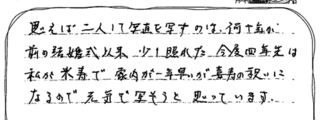 思えば二人して写真を写すのは、何十年か
前の結婚式以来 少し照れた 今度四年先は
私が米寿で 家内が一年早いが喜寿の祝いに
なるので 元気で写そうと 思っています.